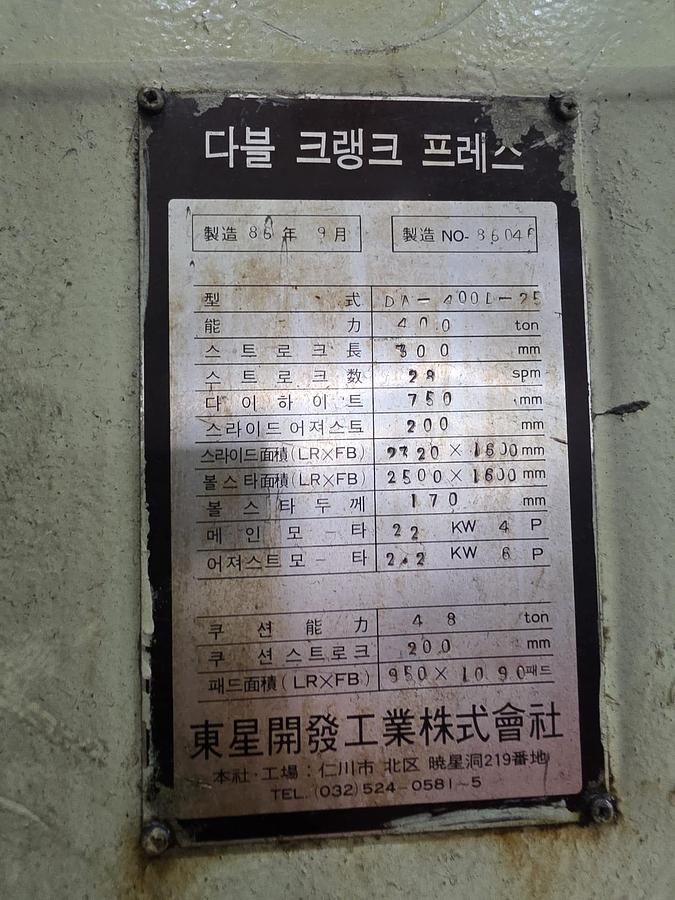 다블 크랭크 프레스
製造 86 年 9 月 製造 NO- 8604
型 式
能 力 400 ton
스 트 로 크 長 300 mm
스 트 로 크 数 28 spm
다 이 하 이 트 750 mm
스라이드 어져스트 200 mm
스라이드面積(LR×FB) × 1600 mm
볼스타面積(LR×FB) 2500 × 1600 mm
볼 스 타 두 께 170 mm
메 인 모 - 타 22 KW 4 P
어져스트 모 - 타 2.2 KW 6 P
쿠 션 能 力 48 ton
쿠 션 스트로크 200 mm
패드面積(LR×FB) 950 × 1090 패드
東星開發工業株式會社
本社·工場 : 仁川市 北区 暁星洞219番地
TEL. (032) 524-0581~5